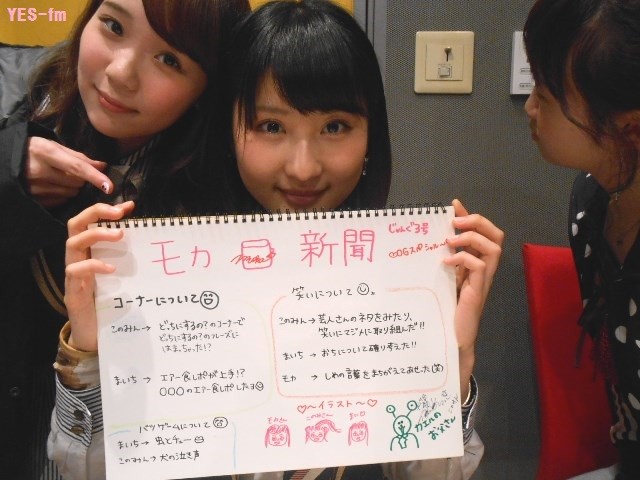 YES-fm
モカ 新聞
じゅんぐ3号
♡OGスペシャル
コーナーについて
このみん→ どちにするの?のコーナーで
どちにするの?のフレーズに
はまっちゃった!?
まいち → エアー食レポが上手!?
○○○のエアー食レポしたョ
バツゲームについて
まいち→ 虫とチュー
このみん→ 犬の泣き声
笑いについて
このみん→ 芸人さんのネタをみたり、
笑いにマジメに取り組んだ!!
まいち → おちについて練り考えた!!
モカ → しめの言葉をまちがえてあせった(笑)
♡〜イラスト〜♡
カエルの
おじさん